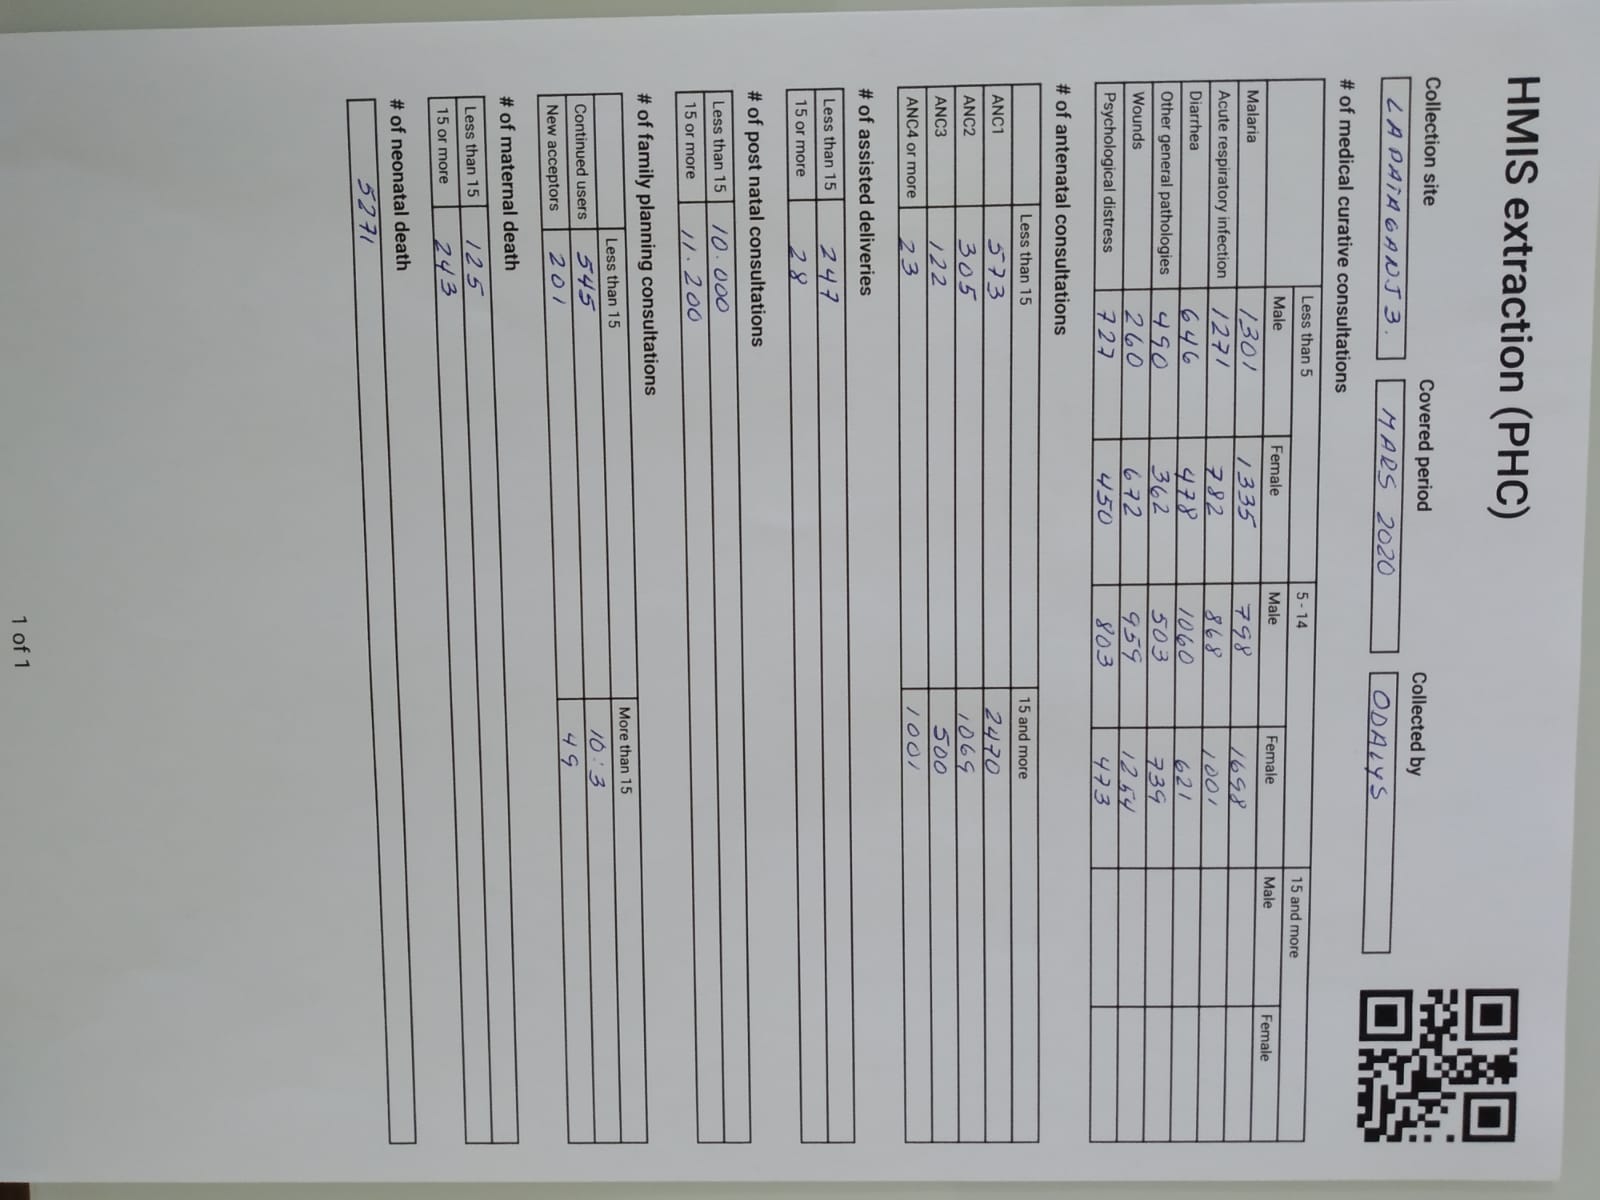 HMIS extraction (PHC)
Collection site Covered period Collected by
LAPATAGANJ3. MARS 2020 ODALYS
# of medical curative consultations
Less than 5 5 - 14 15 and more
Male Female Male Female Male Female
Malaria 1301 1335 798 1698
Acute respiratory infection 1271 782 868 1001
Diarrhea 646 478 1060 621
Other general pathologies 490 362 503 739
Wounds 260 672 959 1254
Psychological distress 727 450 803 473
# of antenatal consultations
Less than 15 15 and more
ANC1 573 2470
ANC2 305 1069
ANC3 122 500
ANC4 or more 23 1001
# of assisted deliveries
Less than 15 247
15 or more 28
# of post natal consultations
Less than 15 10.000
15 or more 11.200
# of family planning consultations
Less than 15 More than 15
Continued users 545 10:3
New acceptors 201 49
# of maternal death
Less than 15 125
15 or more 243
# of neonatal death
5271
1 of 1